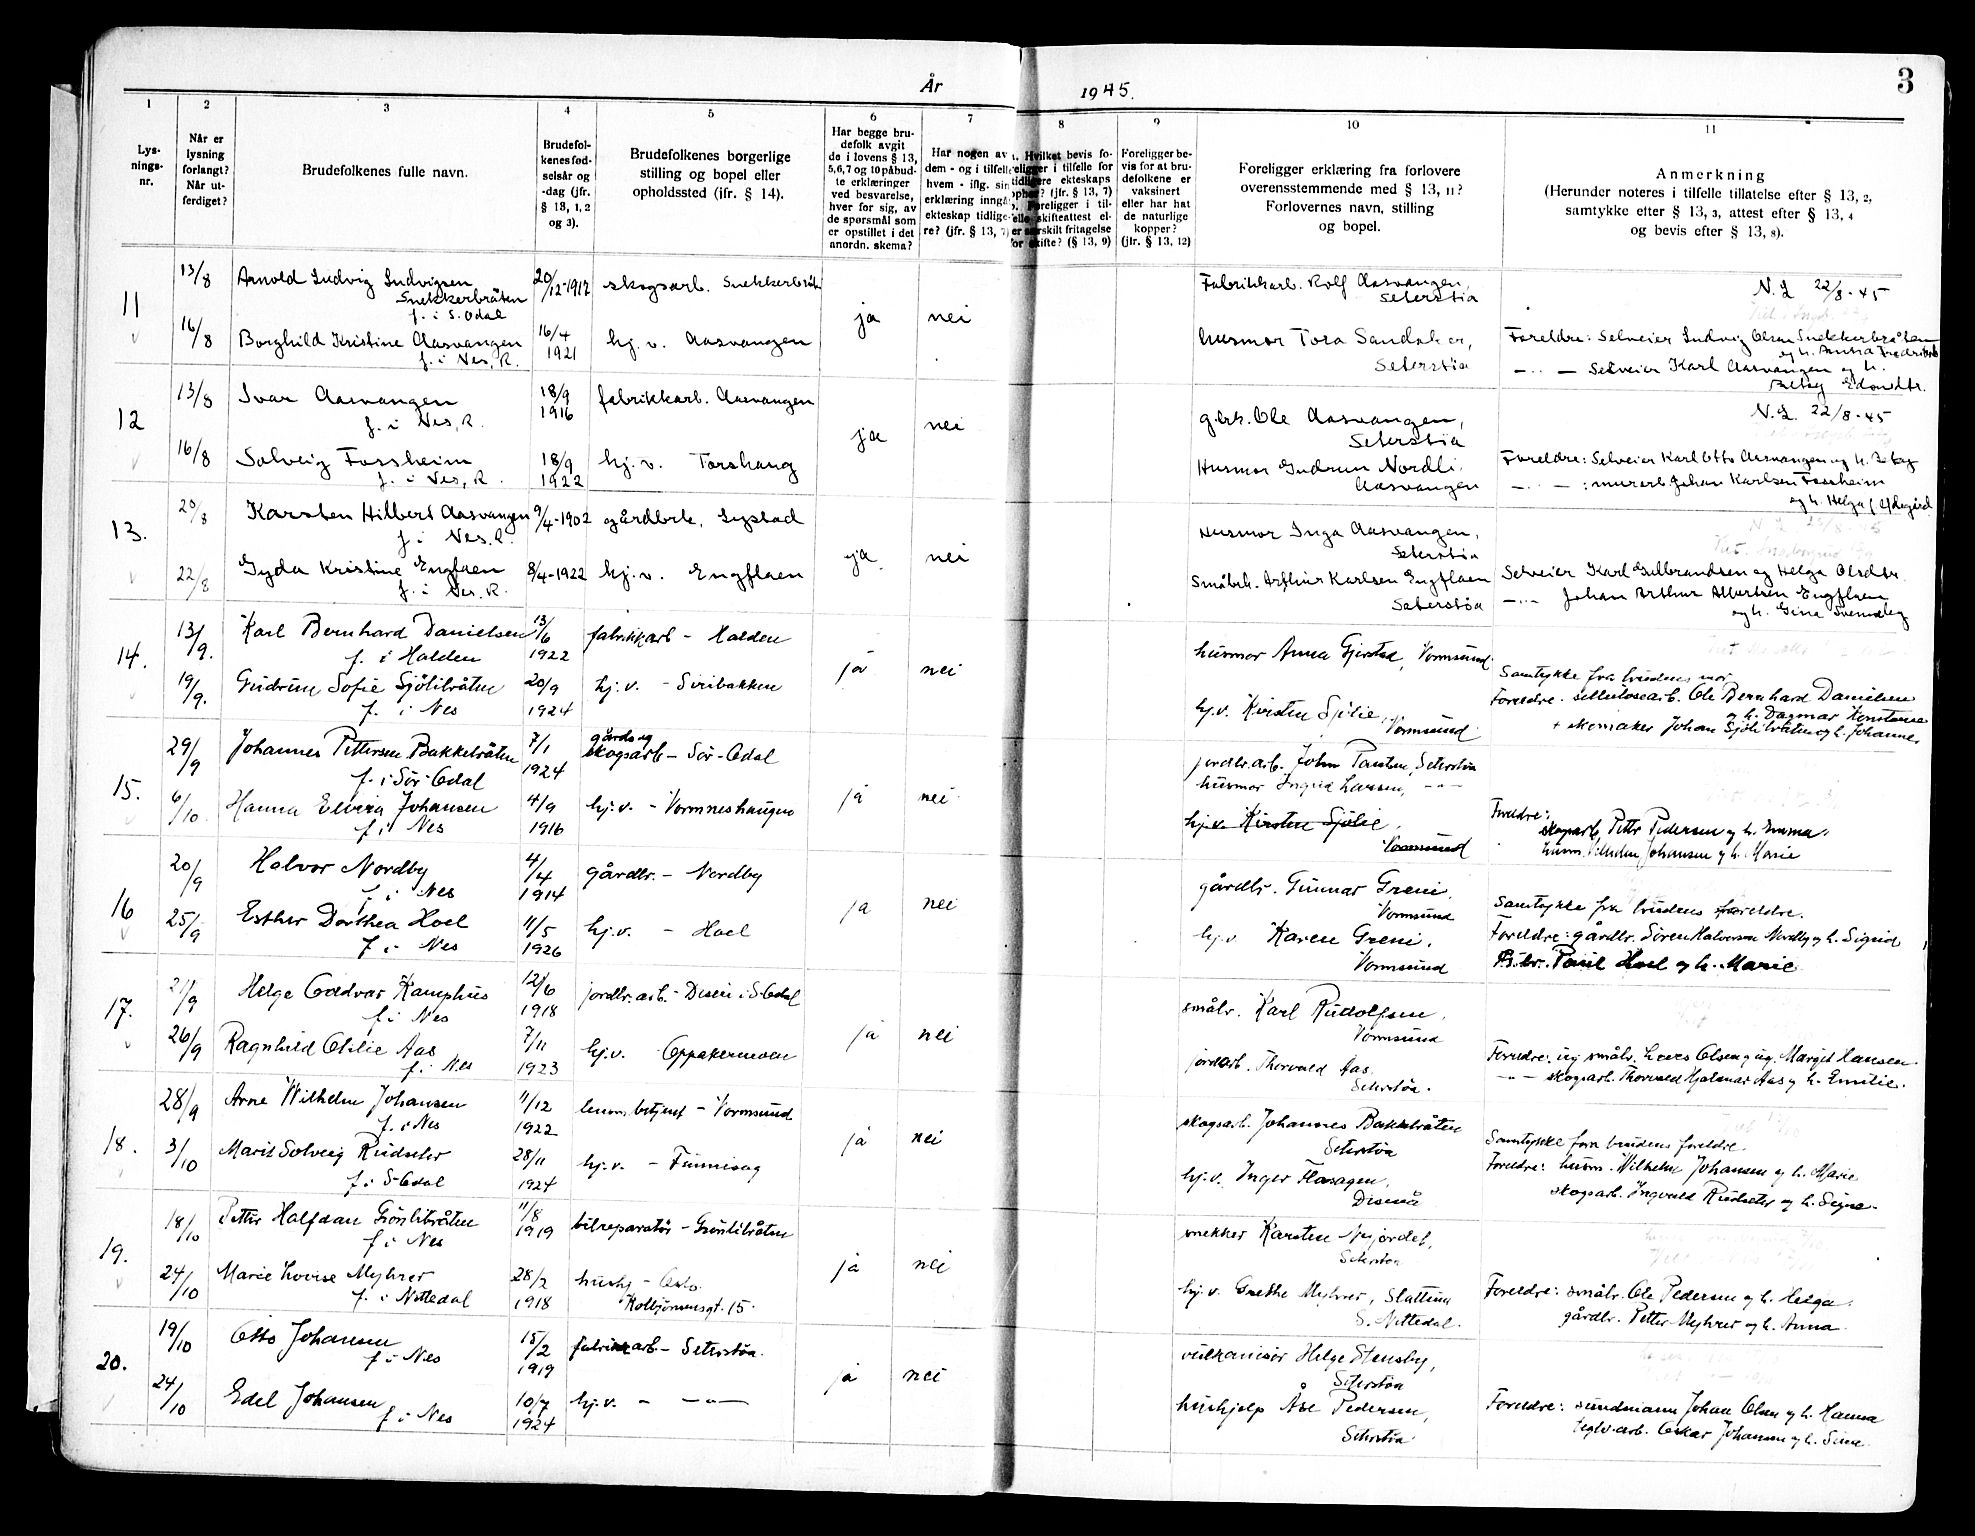 År 1945.
3
1 2 3 4 5 6 7 8 9 10 11
Lys-
nings-
nr.
Når er
lysning
forlangt?
Når ut-
ferdiget?
Brudefolkenes fulle navn.
Brudefol-
kenes fød-
selsår og
-dag (jfr.
§ 13, 1, 2
og 3).
Brudefolkenes borgerlige
stilling og bopel eller
opholdssted (jfr. § 14).
Har begge bru-
defolk avgit
de i lovens § 13,
5,6,7 og 10 påbud-
te erklæringer
ved besvarelse,
hver for sig, av
de spørsmål som
er opstillet i det
anordn. skema?
Har nogen av
dem - og i tilfelle
hvem - iflg. sin
erklæring inngå
ekteskap tidlige-
re? (jfr. § 13, 7)
Hvilket bevis fo-
religger i tilfelle for
tidligere ekteskaps
ophør? (jfr. § 13, 7)
Foreligger i til-
felle skifteattest el-
ler særskilt fritagelse
for skifte? (§ 13, 9)
Foreligger be-
vis for at bru-
defolkene er
vaksinert
eller har hat
de naturlige
kopper?
(jfr. § 13, 12)
Foreligger erklæring fra forlovere
overensstemmende med § 13, 11?
Forlovernes navn, stilling
og bopel.
Anmerkning
(Herunder noteres i tilfelle tillatelse efter § 13, 2,
samtykke efter § 13, 3, attest efter § 13, 4
og bevis efter § 13, 8).
11 13/8 Arnold Ludvig Ludvigsen 20/12-1917 skogsarb. Snekkerbråt. Fabrikkarb. Rolf Aasvangen, N.L 22/8-45
Snekkerbråten Seterstøa
f. i S. Odal ja nei
16/8 Borghild Kristine Aasvangen 16/4 hj. v. Aasvangen husmor Tora Sandaker, Foreldre: Selveier Ludvig Olsen Snekkerbråten
f. i Nes, R. 1921 Seterstøa og h.
Selveier Karl Aasvangen og h.
12 13/8 Ivar Aasvangen 18/9 fabrikkarb. Aasvangen g.brk. Ole Aasvangen, N.L. 22/8-45
f. i Nes, R. 1916 ja nei Seterstøa
16/8 Solveig Fossheim 18/9 hj. v. Torshaug Husmor Gudrun Nordli, Foreldre: Selveier Karl Otto Aasvangen og h.
f. i Nes, R. 1922 Aasvangen murarb Johan Karlsen Fossheim
og h. Helga
13. 20/8 Karsten Hilbert Aasvangen 9/4-1902 gårdbrk. Husmor Inga Aasvangen,
f. i Nes. R. ja nei Seterstøa
22/8 Gyda Kristine Engflaen 8/4-1922 hj. v. Engflaen Småbrk. Arthur Karlsen Engflaen Selveier Karl Gulbrandsen og Helga Olsdtr.
f. i Nes. R. Seterstøa Johan Arthur Engflaen
og h. Gina
14. 13/9. Karl Bernhard Danielsen 13/6 fabrikkarb - Halden husmor Anna Gjerstad, Vormsund
f. i Halden 1922 ja nei Samtykke fra brudens mor
19/9. Gudrun Sofie Sjölibråten 20/9 hj. v. - Siribakken hj.v. Kirsten Sjölie, Foreldre. cellulosearb. Ole Bernhard Danielsen
f. i Nes 1924 Vormsund og h. Dagmar
+ skomaker Johan Sjölibråten og h. Johanne
15. 29/9 Johannes Pettersen Bakkebråten 7/1 gårds og
skogsarb - Sør-Odal jordbr.arb. John Seterstøa
f. i Sør-Odal 1924 ja nei husmor Ingrid Larsen, -"-
6/10 Hanna Elvira Johansen 4/9 hj.v. - Vormneshaugen hj.v. Kirsten Sjölie, Foreldre:
f. i Nes 1916 Vormsund skogsarb. Petter Pedersen og h. Emma.
Vilhelm Johansen og h. Marie
16 20/9 Halvor Nordby 4/4 gårdbr. - Nordby gårdbr. Gunnar Greni,
f. i Nes 1914 ja nei Vormsund Samtykke fra brudens foreldre.
25/9 Esther Dorthea Hoel 11/5 hj.v. - Hoel hj.v Karen Greni, Foreldre: gårdbr. Søren Halvorsen Nordby og h. Sigrid
f. i Nes 1926 Vormsund Paul Hoel og h. Marie
17. 21/9 Helge Oddvar Kamphus 12/6 jordbr.arb. - Disen i S. Odal småbr. Karl Rudolfsen,
f. i Nes 1918 ja nei Vormsund
26/9 Ragnhild Otilie Aas 7/11 hj.v. Oppakermoen jordarb. Thorvald Aas. Foreldre: ug småbr. Olsen og ug. Margit Hansen
f. i Nes 1923 Seterstøa. -"- skogsarb. Thorvald Hjalmar Aas og h. Emilie.
18. 28/9 Arne Wilhelm Johansen 11/12 lensm.betjent - Vormsund skogsarb. Johannes Bakkebråten
f. i Nes 1922 ja nei Seterstøa Samtykke fra brudens foreldre.
3/10 Marit Solveig Rudseter 28/11 hj.v. - Funnisag hj.v. Inger Flasagen, Foreldre: husm. Wilhelm Johansen og h. Marie
f. i S. Odal 1924 Disenå skogsarb. Ingvald Rudseter og h. Signe.
19. 18/10 Petter Halfdan Grönlibråten 11/8 bilreparatør - Grönlibråten snekker Karsten
f. i Nes 1919 ja nei Seterstøa
24/10 Marie Lovise Myhrer 28/2 hushj - Oslo. hj.v. Grethe Myhrer, Slattum Foreldre: småbr. Ole Pedersen og h. Helga.
f. i Nittedal 1918 Kolbjörnsensgt. 15. S. Nittedal. gårdbr. Petter Myhrer og h. Anna
20. 19/10 Otto Johansen 15/2 fabrikkarb - Seterstøa. vulkanisör Helge Stensby,
f. i Nes 1919 ja nei Seterstøa
24/10 Edel Johansen 10/7 hj.v. - -"- hushjelp Åse Pedersen, Foreldre: sundmann Johan Olsen og h. Hanna
f. i Nes 1924 Seterstøa. teglv.arb. Oskar Johansen og h. Sina